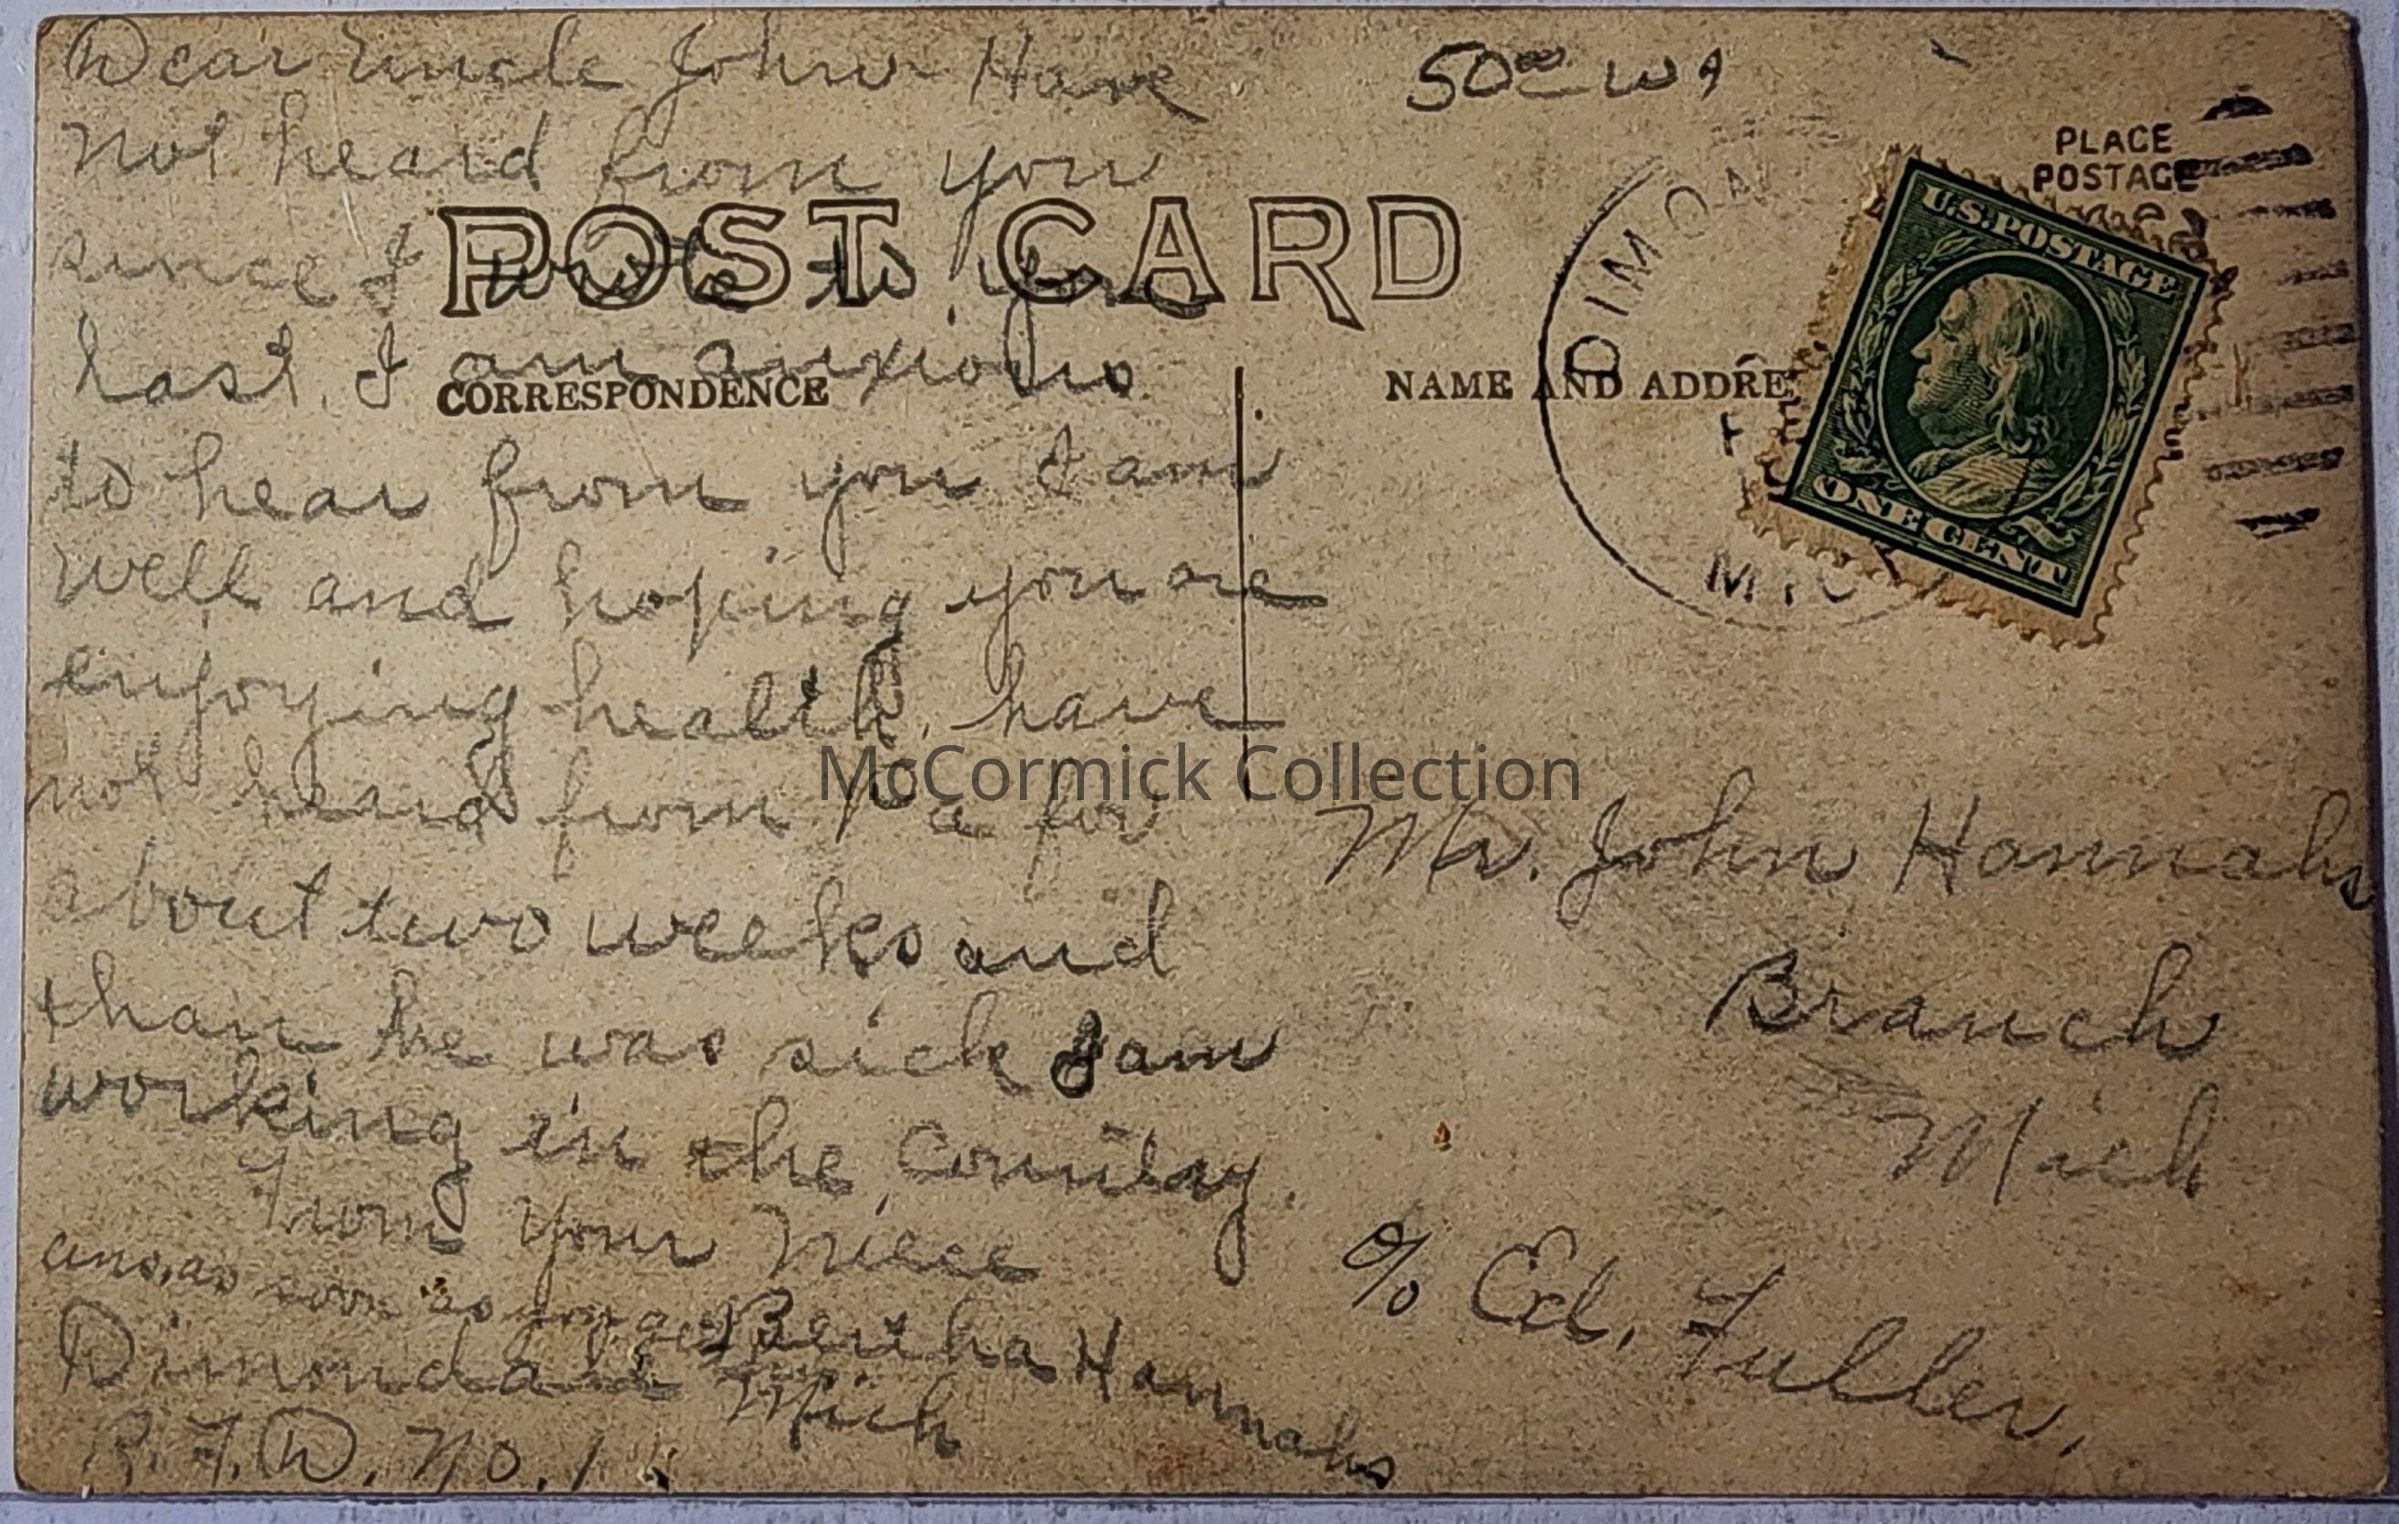 Dear Uncle John - Have
not heard from you
since I wrote to you
last. I am anxious
to hear from you I am
well and hoping you are
enjoying health, have
not heard from Pa for
about two weeks and
than he was sick I am
working in the Country.
From your Niece
ans. as soon as you get this
Bertha Hannahs
Dimondale Mich
R.F.D. No. 1
POST CARD
CORRESPONDENCE
NAME AND ADDRE
5000
PLACE
POSTAGE
DIMON
MIC
U.S. POSTAGE
ONE CENT
Mr. John Hannahs
Branch
Mich
c/o Ed. Fuller.
McCormick Collection